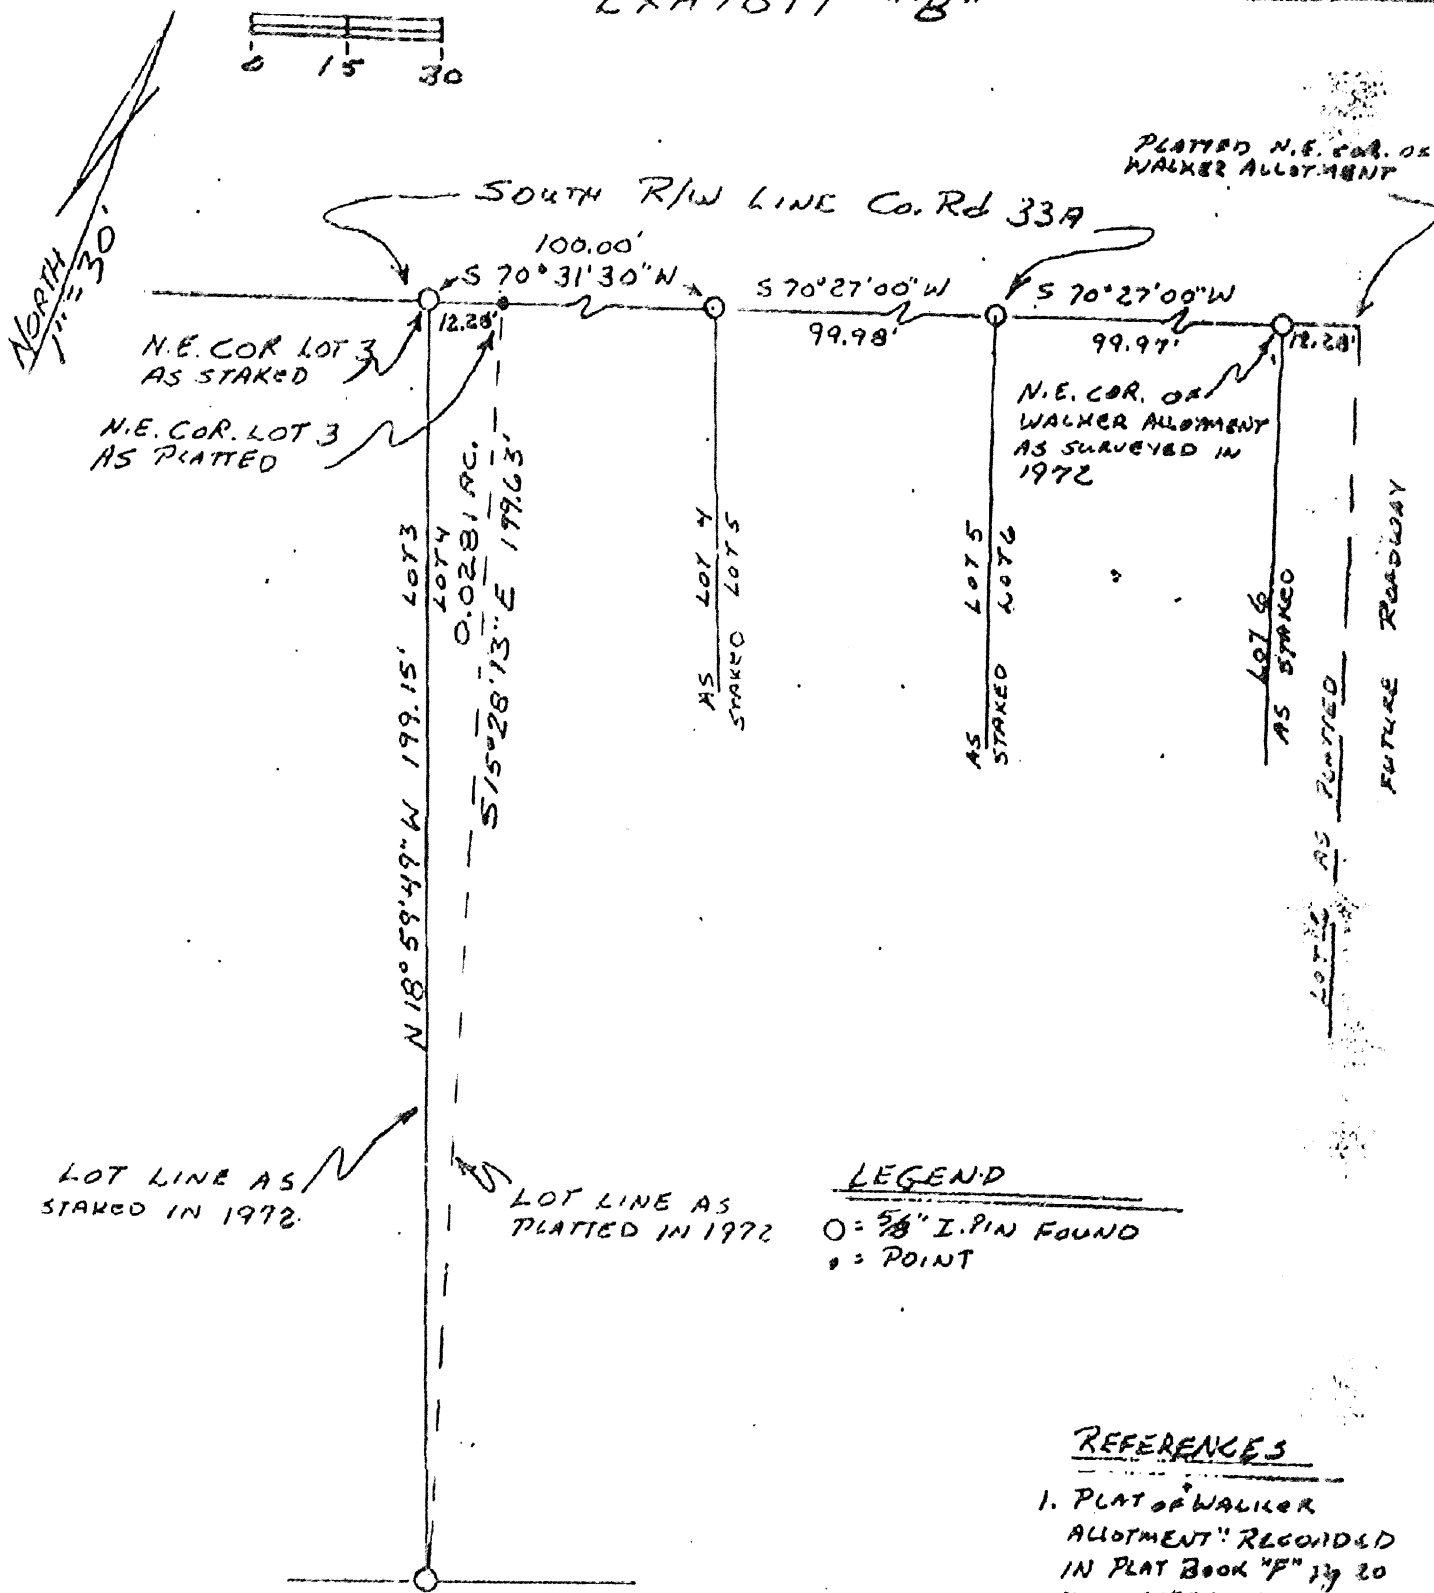 EXHIBIT "B"
0 15 30
NORTH
1"=30'
PLATTED N.E. COR. OF
WALKER ALLOTMENT
SOUTH R/W LINE Co. Rd 33A
100.00'
S 70°31'30" W
S 70°27'00" W
S 70°27'00" W
12.28'
99.98'
99.97'
12.28'
N.E. COR LOT 3
AS STAKED
N.E. COR. LOT 3
AS PLATTED
N.E. COR. OF
WALKER ALLOTMENT
AS SURVEYED IN
1972
LOT 3
LOT 4
0.0281 AC.
S 15°28'13" E 199.63'
N 18°59'49" W 199.15'
AS LOT 4
STAKED LOT 5
AS LOT 5
STAKED LOT 6
LOT 6
AS STAKED
LOT 6 AS PLATTED
FUTURE ROADWAY
LOT LINE AS
STAKED IN 1972
LOT LINE AS
PLATTED IN 1972
LEGEND
O = 5/8" I. PIN FOUND
• = POINT
REFERENCES
1. PLAT OF "WALKER
ALLOTMENT" RECORDED
IN PLAT BOOK "F" Pg 20